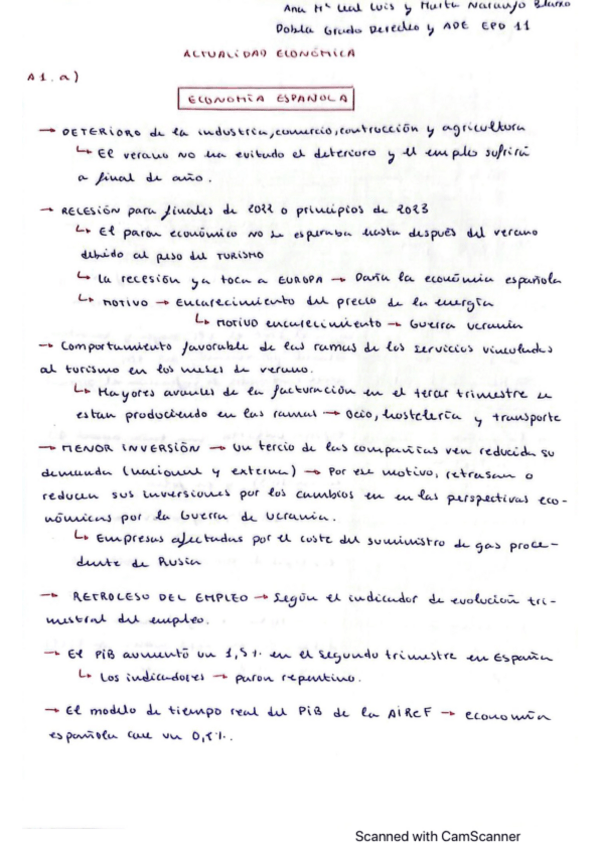 Ana Mª Leal Luis y Marta Naranjo Blanco
Doble Grado Derecho y ADE EPD 11
ACTUALIDAD ECONÓMICA
A1. a)
ECONOMÍA ESPAÑOLA
→ DETERIORO de la industria, comercio, contrucción y agricultura
↳ El verano no ha evitado el deterioro y el empleo sufrirá
a final de año.
→ RECESIÓN para finales de 2022 o principios de 2023
↳ El paron económico no se esperaba hasta después del verano
debido al peso del TURISMO
↳ La recesión ya toca a EUROPA → Daña la económia española
↳ MOTIVO → Encarecimiento del precio de la energía
↳ Motivo encarecimiento → Guerra Ucrania
→ Comportamiento favorable de las ramas de los servicios vinculados
al turismo en los meses de verano.
↳ Mayores avances de la facturación en el tercer trimestre se
estan produciendo en las ramas → Ocio, hostelería y transporte
→ MENOR INVERSIÓN → Un tercio de las compañias ven reducida su
demanda (nacional y externa) → Por ese motivo, retrasan o
reducen sus inversiones por los cambios en en las perspectivas eco-
nómicas por la Guerra de Ucrania.
↳ Empresas afectadas por el coste del suministro de gas proce-
dente de Rusia
→ RETROCESO DEL EMPLEO → Según el indicador de evolución tri-
mestral del empleo.
→ El PiB aumentó un 1,5%. en el segundo trimestre en España
↳ Los indicadores → paron repentino.
→ El modelo de tiempo real del PiB de la AiReF → economía
española cae un
Scanned with CamScanner